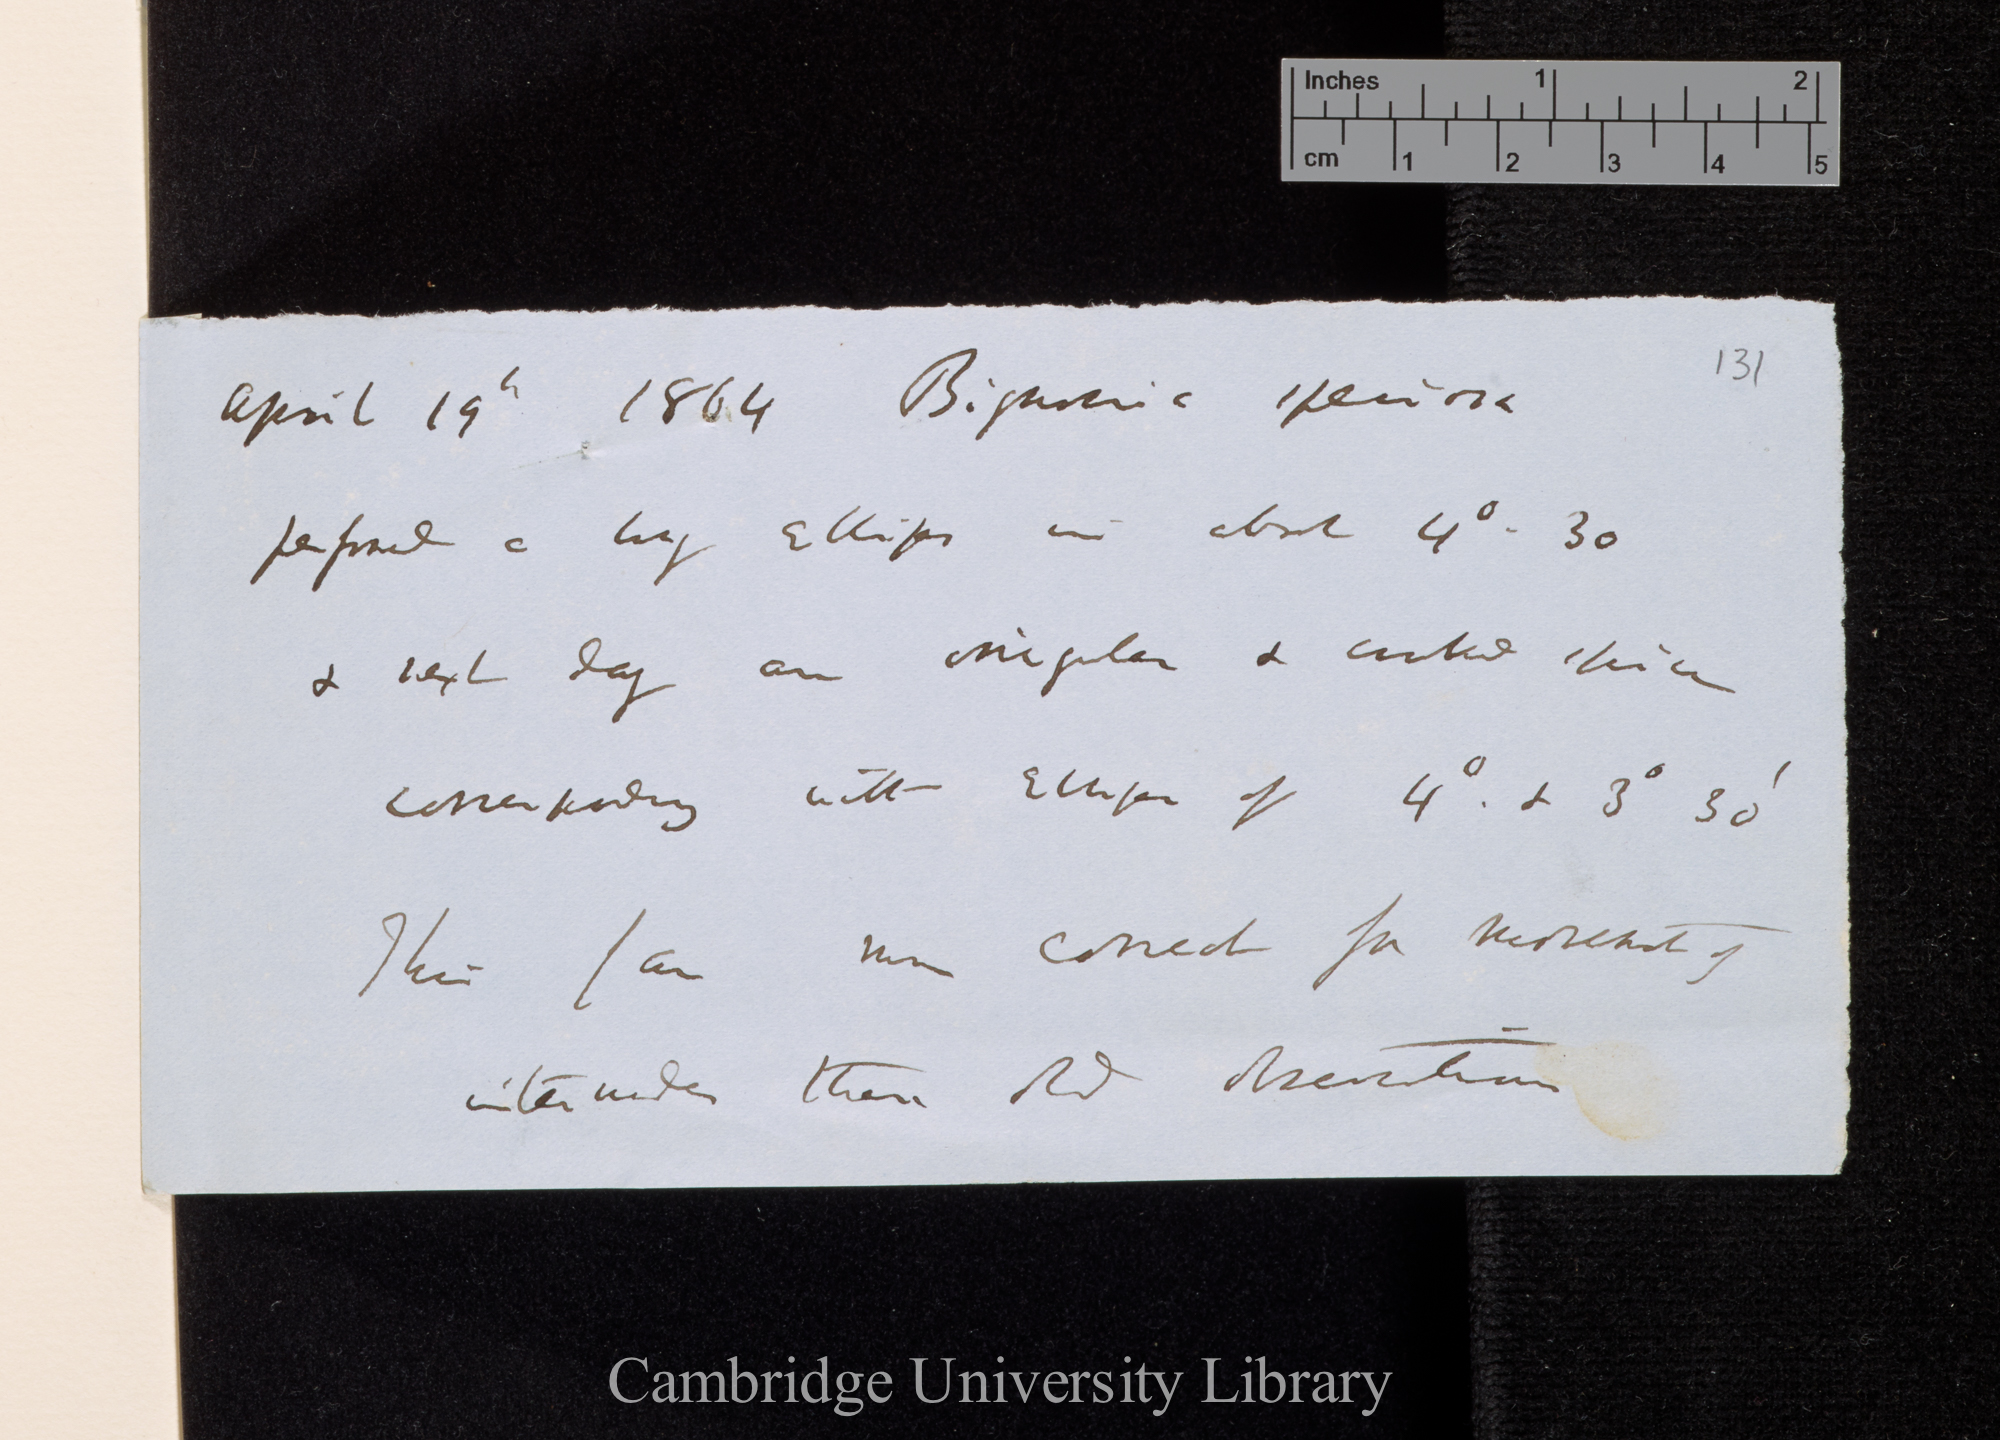 Inches 1 2
cm 1 2 3 4 5
131
April 19th 1864 Bignonia speciosa
performed a long Ellipse in about 4° - 30
& next day an irregular & crooked spire
corresponding with Ellipse of 4°. & 3° 30'
This far more correct for movement of
internodes than old observations
Cambridge University Library